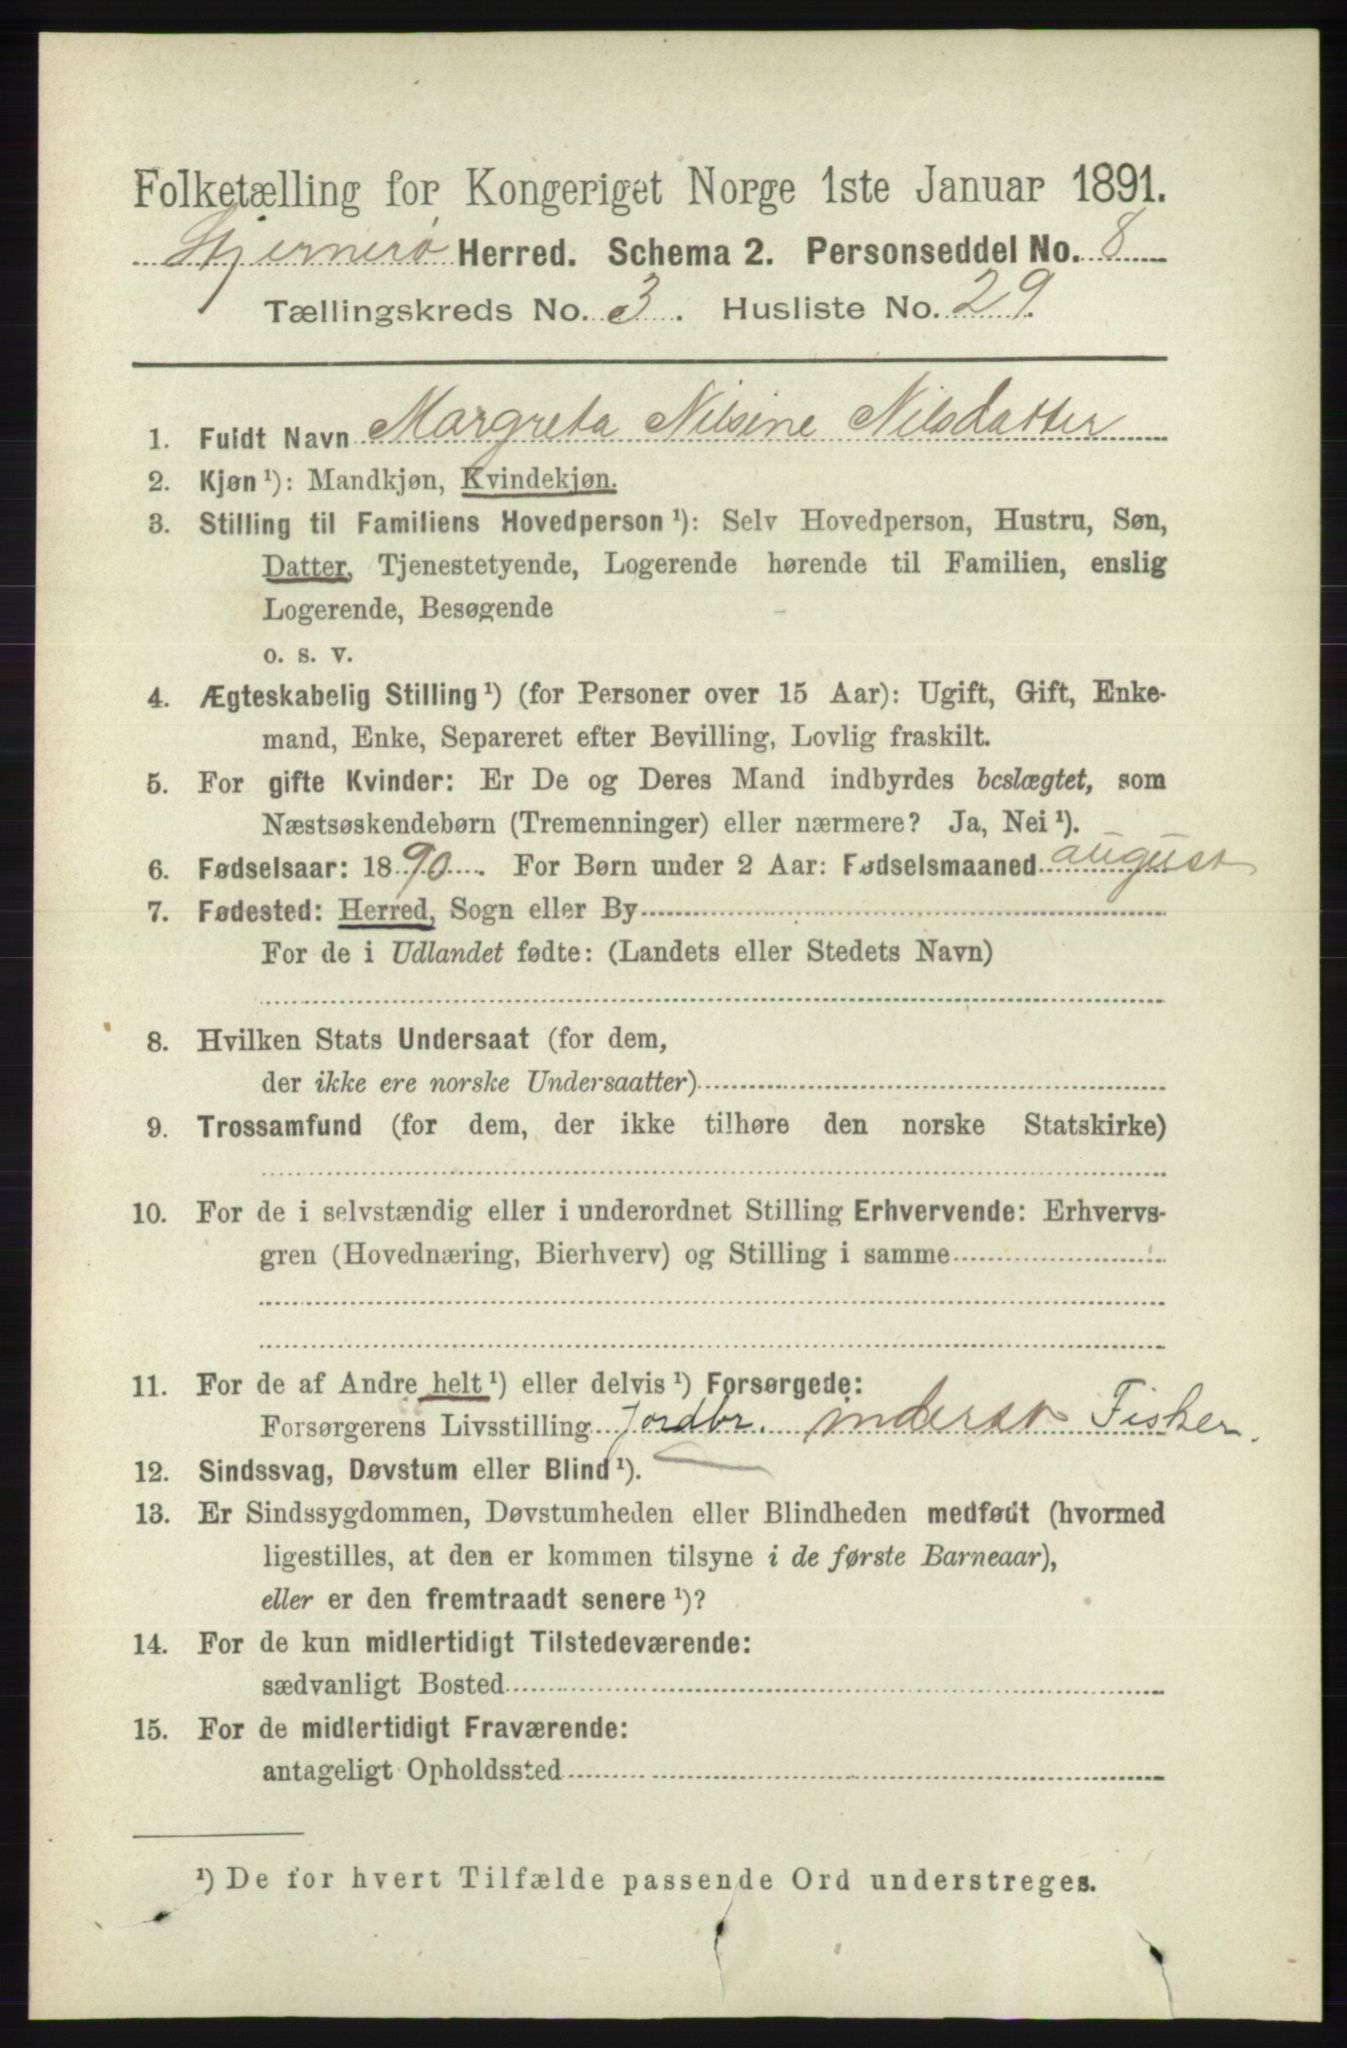 Folketælling for Kongeriget Norge 1ste Januar 1891.
Stjernerø Herred. Schema 2. Personseddel No. 8
Tællingskreds No. 3. Husliste No. 29.
1. Fuldt Navn Margreta Nilsine Nilsdatter
2. Kjøn ¹): Mandkjøn, Kvindekjøn.
3. Stilling til Familiens Hovedperson ¹): Selv Hovedperson, Hustru, Søn,
Datter, Tjenestetyende, Logerende hørende til Familien, enslig
Logerende, Besøgende
o. s. v.
4. Ægteskabelig Stilling ¹) (for Personer over 15 Aar): Ugift, Gift, Enke-
mand, Enke, Separeret efter Bevilling, Lovlig fraskilt.
5. For gifte Kvinder: Er De og Deres Mand indbyrdes beslægtet, som
Næstsøskendebørn (Tremenninger) eller nærmere? Ja, Nei ¹).
6. Fødselsaar: 1890. For Børn under 2 Aar: Fødselsmaaned august
7. Fødested: Herred, Sogn eller By
For de i Udlandet fødte: (Landets eller Stedets Navn)
8. Hvilken Stats Undersaat (for dem,
der ikke ere norske Undersaatter)
9. Trossamfund (for dem, der ikke tilhøre den norske Statskirke)
10. For de i selvstændig eller i underordnet Stilling Erhvervende: Erhvervs-
gren (Hovednæring, Bierhverv) og Stilling i samme
11. For de af Andre helt ¹) eller delvis ¹) Forsørgede:
Forsørgerens Livsstilling Jordbr. inderst Fisker.
12. Sindssvag, Døvstum eller Blind ¹).
13. Er Sindssygdommen, Døvstumheden eller Blindheden medfødt (hvormed
ligestilles, at den er kommen tilsyne i de første Barneaar),
eller er den fremtraadt senere ¹)?
14. For de kun midlertidigt Tilstedeværende:
sædvanligt Bosted
15. For de midlertidigt Fraværende:
antageligt Opholdssted
¹) De for hvert Tilfælde passende Ord understreges.